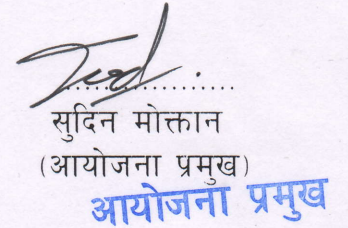 सुदिन मोक्तान
(आयोजना प्रमुख)
आयोजना प्रमुख